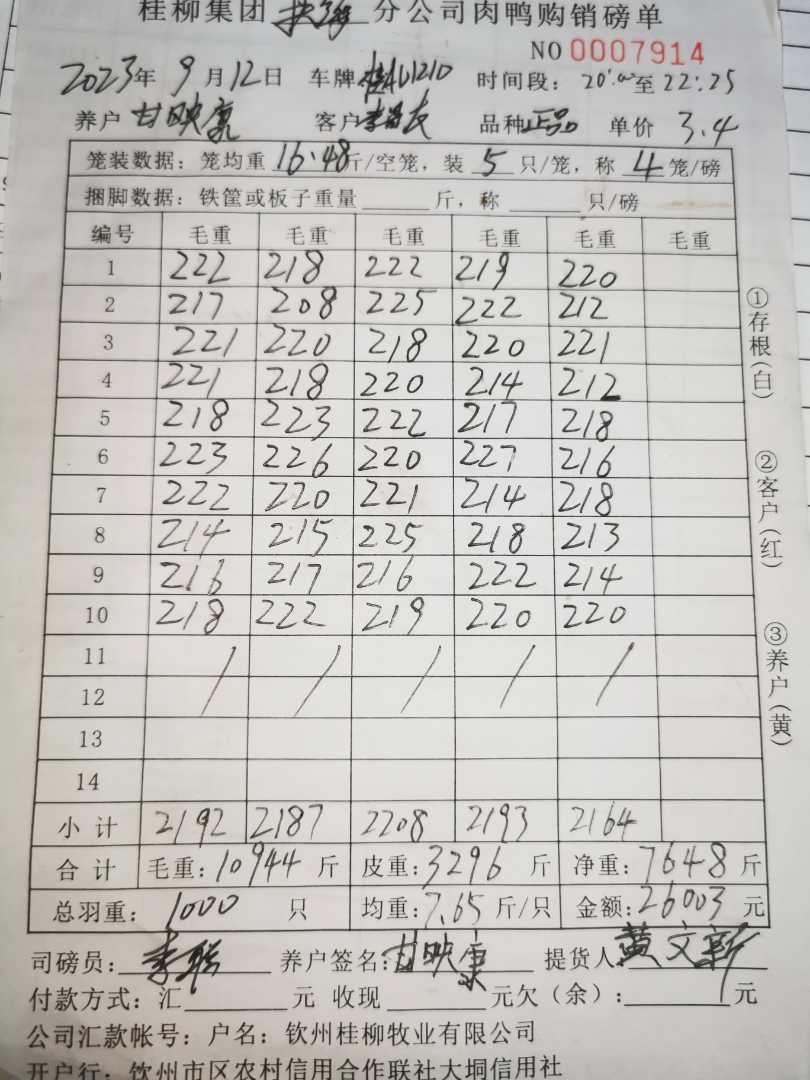 桂柳集团 分公司肉鸭购销磅单
NO 0007914
2023年 9月12日 车牌 1210 时间段: 20:00至22:25
养户 甘映康 客户 友 品种 正品 单价 3.4
笼装数据: 笼均重 16.48斤/空笼, 装 5 只/笼, 称 4 笼/磅
捆脚数据: 铁筐或板子重量 斤, 称 只/磅
编号 毛重 毛重 毛重 毛重 毛重 毛重
1 222 218 222 219 220
2 217 208 225 222 212
3 221 220 218 220 221
4 221 218 220 214 212
5 218 223 222 217 218
6 223 226 220 227 216
7 222 220 221 214 218
8 214 215 225 218 213
9 216 217 216 222 214
10 218 222 219 220 220
11
12 / / / / /
13
14
小计 2192 2187 2208 2193 2164
合计 毛重: 10944 斤 皮重: 3296 斤 净重: 7648 斤
总羽重: 1000 只 均重: 7.65 斤/只 金额: 26003 元
司磅员: 李 养户签名: 甘映康 提货人 黄文新
付款方式: 汇 元 收现 元欠(余): 元
公司汇款帐号: 户名: 钦州桂柳牧业有限公司
开户行: 钦州市区农村信用合作联社大垌信用社
①存根(白)
②客户(红)
③养户(黄)